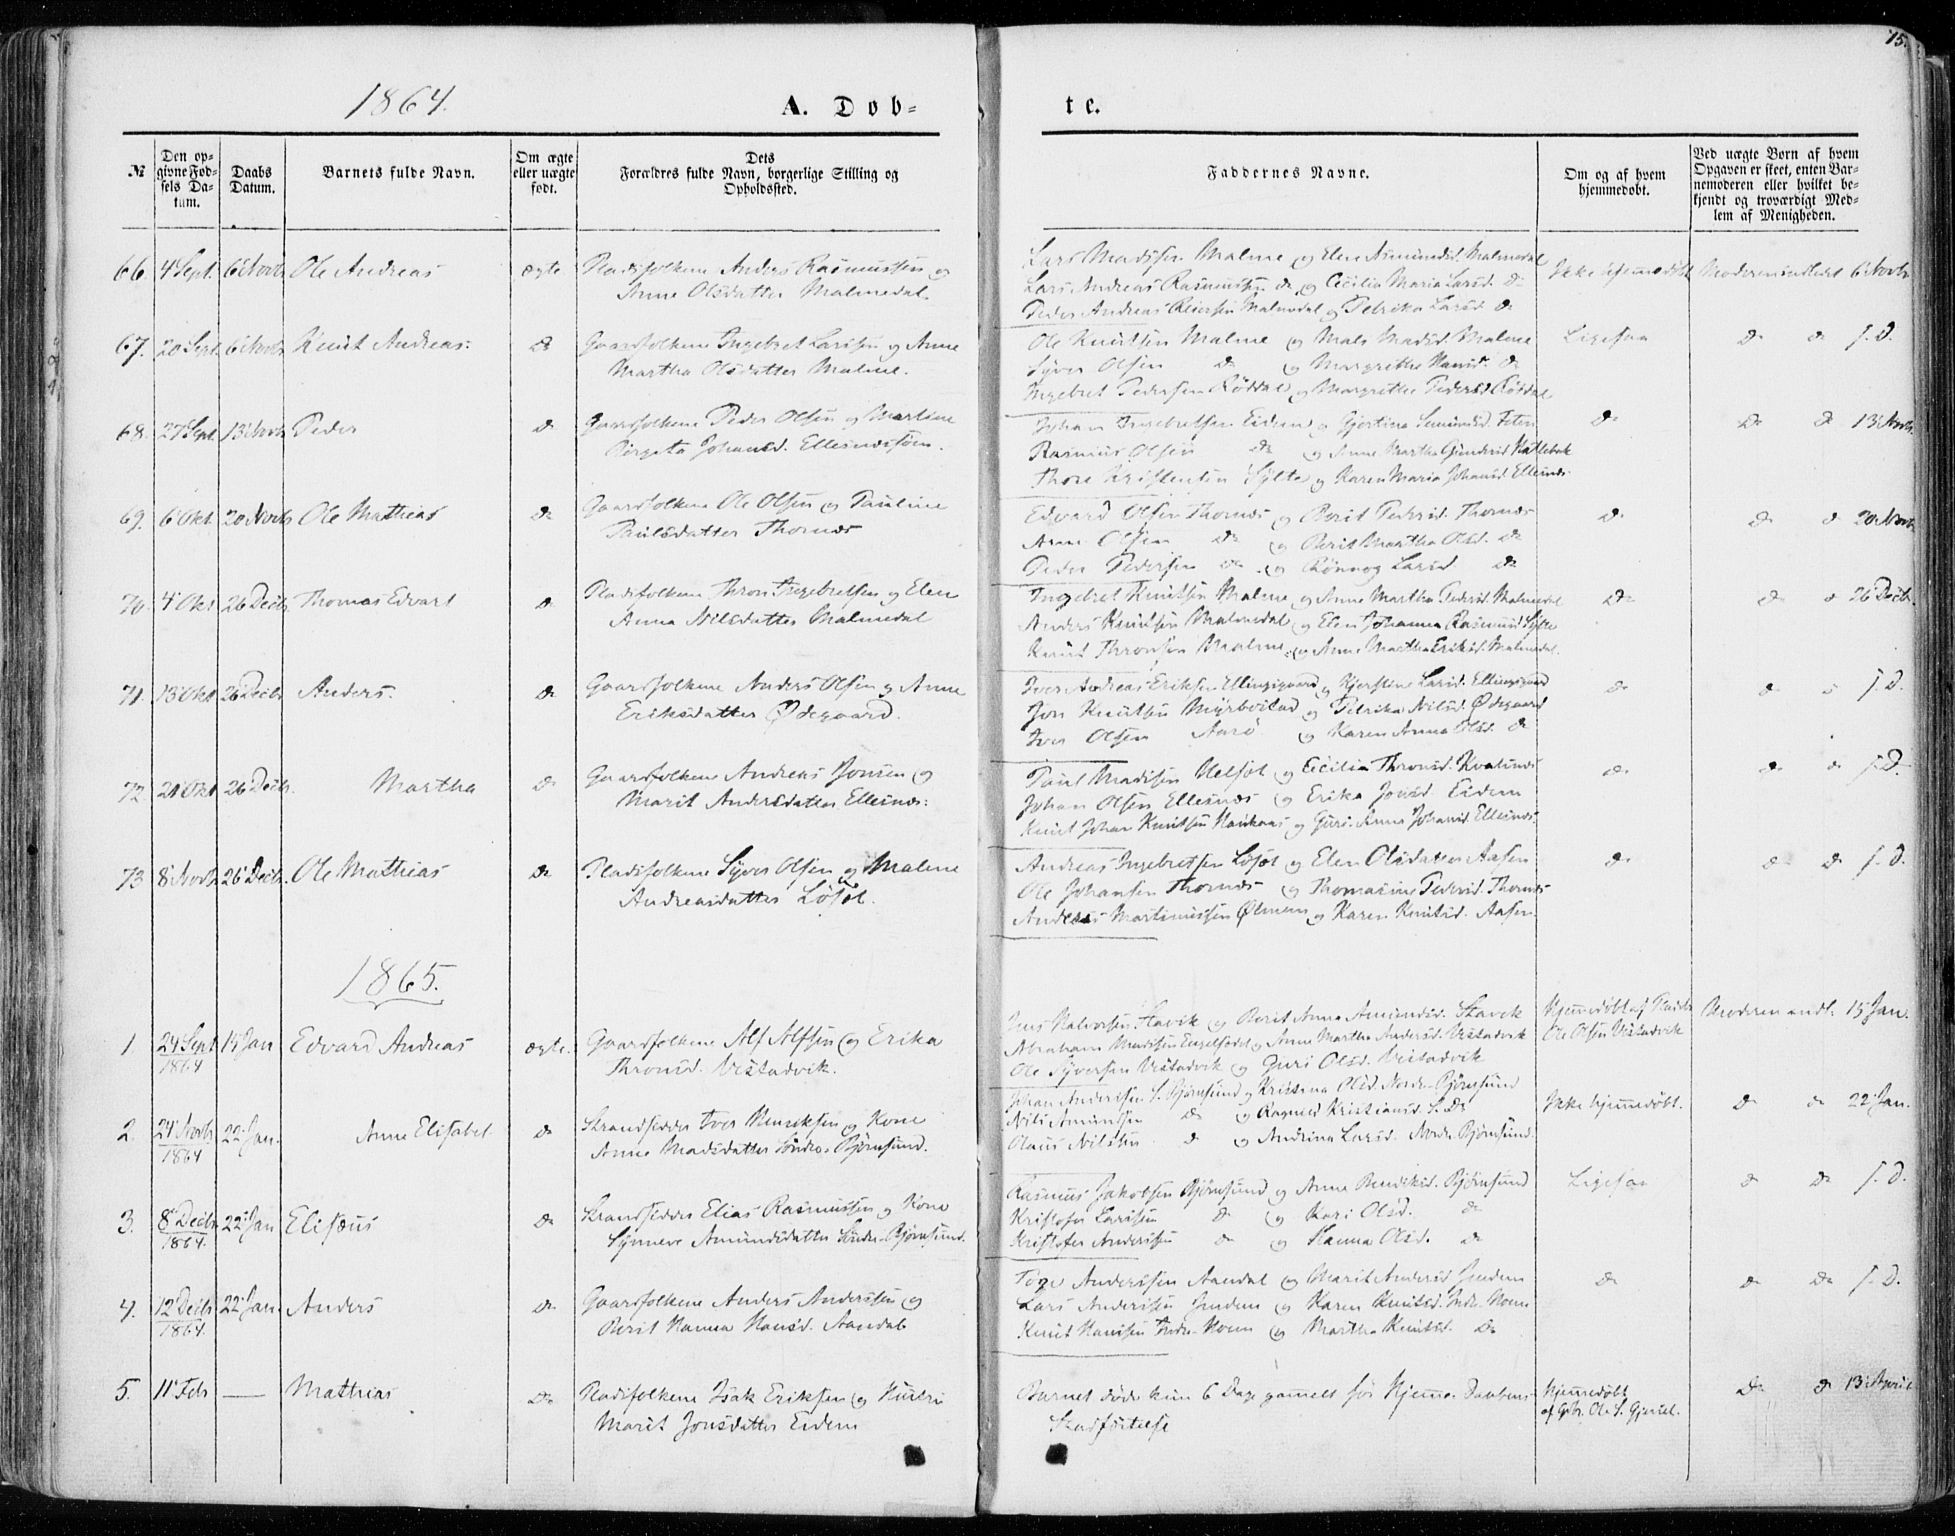 15.
1864.
A. Døb-
te.
№
Den op-
givne Fød-
sels Da-
tum.
Daabs
Datum.
Barnets fulde Navn.
Om ægte
eller uægte
født.
Dets
Forældres fulde Navn, borgerlige Stilling og
Opholdssted.
Faddernes Navne.
Om og af hvem
hjemmedøbt.
Ved uægte Børn af hvem
Opgaven er skeet, enten Bar-
nemoderen eller hvilket be-
kjendt og troværdigt Med-
lem af Menigheden.
66. 4 Sept. 6 Novb Ole Andreas ægte. Pladsfolkene Anders Rasmussen og
Anne Olsdatter Malmedal.
Lars Madsen Malme og Elen Amundsd. Malmedal
Lars Andreas Rasmussen Do og Cecilia Maria Larsd. Do
Peder Andreas Reiersen Malmedal og Petrika Larsd Do
Ikke hjemmedøbt Moderen indledt 6 Novb
67. 20 Sept. 6 Novb Knut Andreas. Do Gaardfolkene Ingebret Larssen og Anne
Martha Olsdatter Malme.
Ole Knutsen Malme og Mals Madsd. Malme
Syver Olsen Do og Margrethe Hansd. Do
Ingebret Pedersen Røddal og Margrethe Pedersd. Røddal
Ligesaa Do Do s. D.
68. 27 Sept. 13 Novb Peder Do Gaardfolkene Peder Olsen og Martine
Birgita Johansd. Ellesnessøen.
Johan Ingebretsen Eidem og Gjertina
Rasmus Olsen Do og Anne Martha Gundersd.
Thore Kristensen Sylte og Karen Maria Johansd. Ellesnes
Do Do Do 13 Novb.
69. 6 Okt 20 Novb Ole Mathias Do Gaardfolkene Ole Olsen og Pauline
Paulsdatter Thornæs
Edvard Olsen Thornæs og Berit Pedersd. Thornæs
Arne Olsen Do og Berit Martha Olsd. Do
Peder Pedersen Do og Rønnog Larsd Do
Do Do Do 20 Novb
70. 4 Okt 26 Decbr Thomas Edvart Do Pladsfolkene Thron Ingebretsen og Elen
Anna Nilsdatter Malmedal
Ingebret Knutsen Malme og Anne Martha Pedersd. Malmedal
Anders Knutsen Malmedal og Elen Johanna Rasmusd Sylte
Knut Thronsen Malme og Anne Martha Eriksd. Malmedal.
Do Do Do 26 Decbr.
71. 13 Okt 26 Decbr Anders. Do Gaardfolkene Anders Olsen og Anne
Eriksdatter Ødegaard.
Iver Andreas Eriksen Ellingsgaard og Kjerstine Larsd. Ellingsgaard
Jon Knutsen Myrbostad og Petrika Nilsd. Ødegaard
Iver Olsen Aarø og Karen Anna Olsd. Do
Do Do Do s. D.
72. 21 Okt 26 Decbr. Martha Do Gaardfolkene Andreas Jonsen og
Marit Andersdatter Ellesnæs.
Paul Madssen Helsøt og Cecilia Thronsd. Kvalsnes
Johan Olsen Ellesnæs og Erika Jonsd. Eidem
Knut Johan Knutsen Haukaas og Guri Anna Johansd. Ellesnæs.
Do Do Do s. D.
73 8 Novb. 26 Decbr. Ole Mathias Do Pladsfolkene Syver Olsen og Malene
Andreasdatter Løset.
Andreas Ingebretsen Løset og Elen Olsdatter Aasen
Ole Johansen Thornæs og Thomasine Pedersd. Thornæs
Andreas Martinussen Ølmem og Karen Knutsd. Aasen
Do Do Do s. D.
1865.
1. 24 Sept 1864 15 Jan Edvard Andreas ægte. Gaardfolkene Alf Alfsen og Erika
Thronsd. Vestadvik.
Jens Halvorsen Stavik og Berit Anna Amundsd. Stavik
Abraham Madssen Engelsødet og Anne Martha Andersd. Vestadvik
Ole Syversen Vestadvik og Guri Olsd. Vestadvik
Hjemmedøbt af
Ole Olsen Vestadvik
Moderen indl. 15 Jan.
2. 24 Novb 1864 22 Jan. Anne Elisabet Do Strandsidder Iver Henriksen og Kone
Anne Madsdatter Søndre-Bjørnsund.
Johan Andersen S. Bjørnsund og Kristina Olsd. Nordre-Bjørnsund
Nils Amundsen Do og Ragned Kristiansd. S. Do
Olaus Nilssen Do og Andrina Larsd. Nordre-Bjørnsund.
Ikke hjemmedøbt. Do Do 22 Jan.
3. 8 Decbr 1864. 22 Jan Elisæus Do Strandsidder Elias Rasmussen og Kone
Synneve Amundsdatter Søndre-Bjørnsund.
Rasmus Jakobsen Bjørnsund og Anne Bendiksd. Bjørnsund
Kristofer Larssen Do og Kari Olsd. Do
Kristofer Andersen Do og Hanna Olsd. Do
Ligesaa Do Do s. D.
4. 12 Decbr 1864. 22 Jan. Anders Do Gaardfolkene Anders Andersen og
Berit Hanna Hansd. Aandal
Tøge Andersen Aandal og Marit Andersd Gendem
Lars Andersen Gendem og Karen Knutsd. Indre-Noem
Knut Hanssen Indre-Noem og Martha Knutsd. Do
Do Do Do s. D.
5. 11 Feb — Mathias Do Pladsfolkene Isak Eriksen og Hustru
Marit Jonsdatter Eidem
Barnet døde kun 6 Dage gammelt før Hjemme-Daabens
Stadfæstelse
Hjemmedøbt
af Gbr. Ole S. Gjersel.
Do Do 13 April